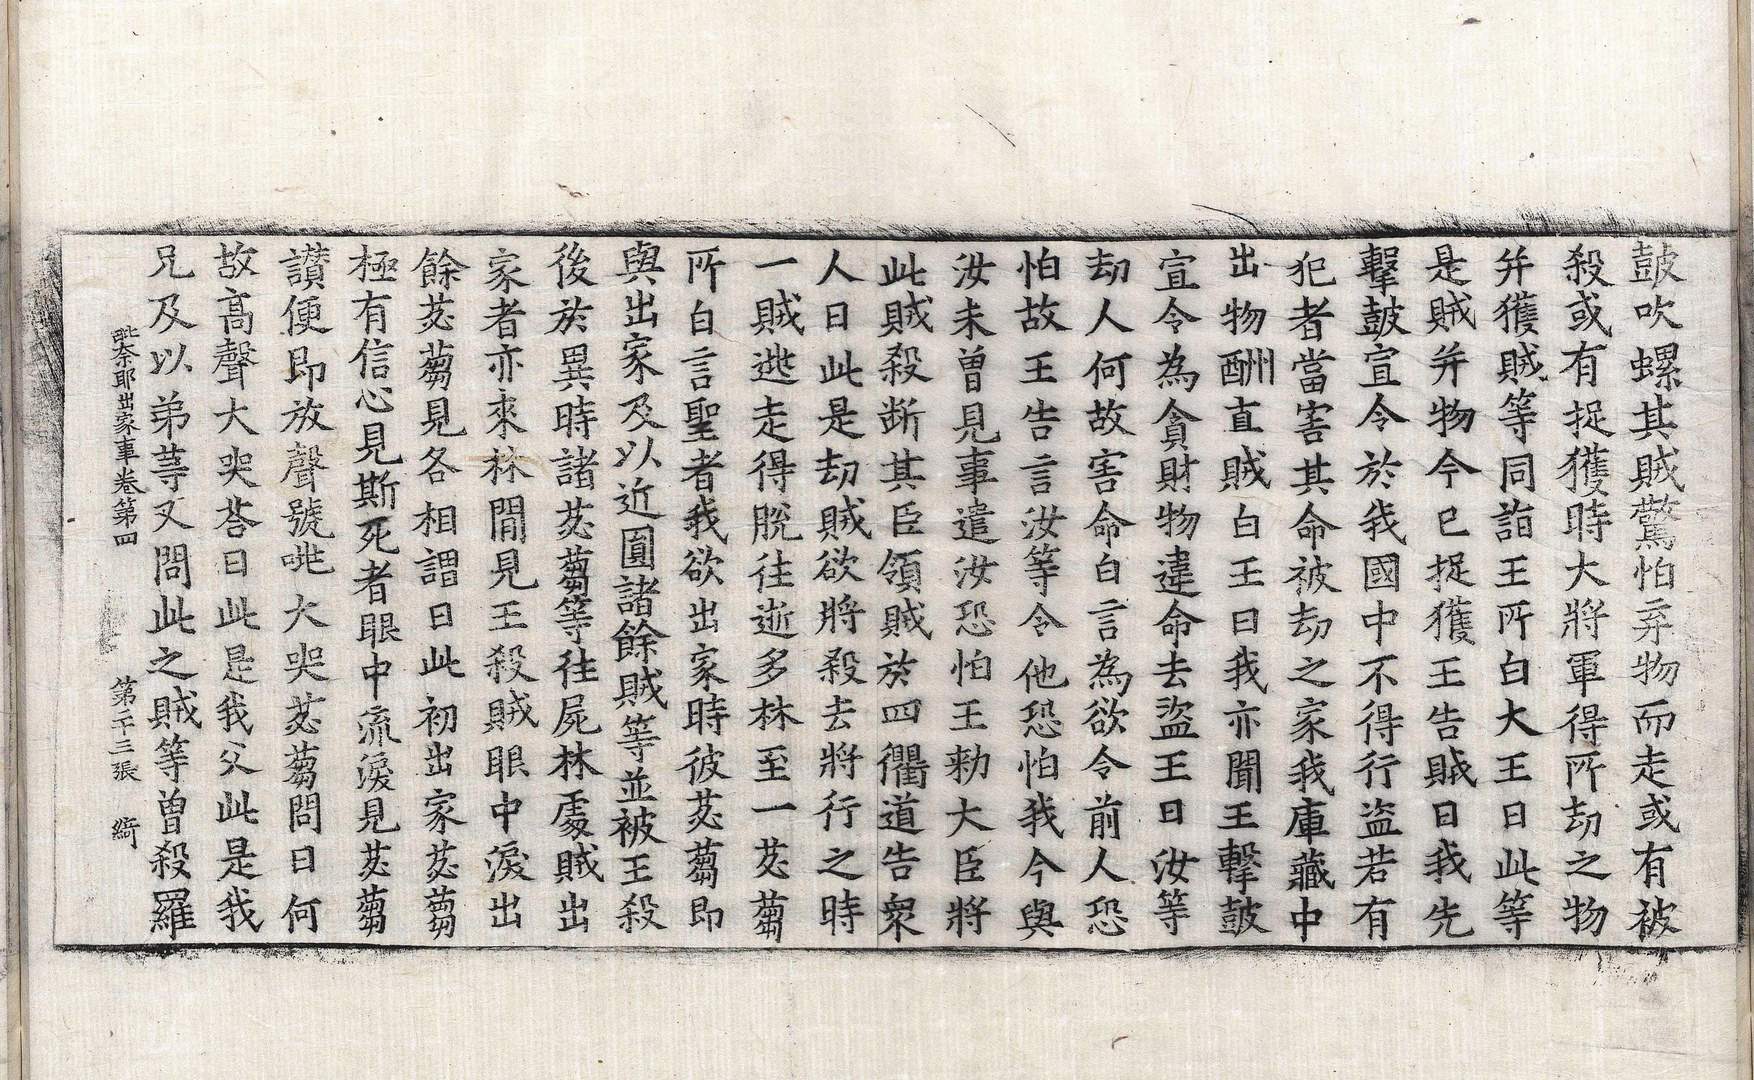 鼓吹螺其賊驚怕弃物而走或有被
殺或有捉獲時大將軍得所劫之物
并獲賊等同詣王所白大王曰此等
是賊并物今已捉獲王告賊曰我先
擊鼓宣令於我國中不得行盜若有
犯者當害其命被劫之家我庫藏中
出物酬直賊白王曰我亦聞王擊鼓
宣令為貪財物違命去盜王曰汝等
劫人何故害命白言為欲令前人恐
怕故王告言汝等令他恐怕我今與
汝未曾見事遣汝恐怕王勑大臣將
此賊殺斷其臣領賊於四衢道告衆
人曰此是劫賊欲將殺去將行之時
一賊逃走得脫往逝多林至一苾蒭
所白言聖者我欲出家時彼苾蒭即
與出家及以近圓諸餘賊等並被王殺
後於異時諸苾蒭等往屍林處賊出
家者亦來林閒見王殺賊眼中淚出
餘苾蒭見各相謂曰此初出家苾蒭
極有信心見斯死者眼中流淚見苾蒭
讃便即放聲號咷大哭苾蒭問曰何
故高聲大哭荅曰此是我父此是我
兄及以弟等又問此之賊等曾殺羅
毗奈耶出家事卷第四　第二十三張　綺